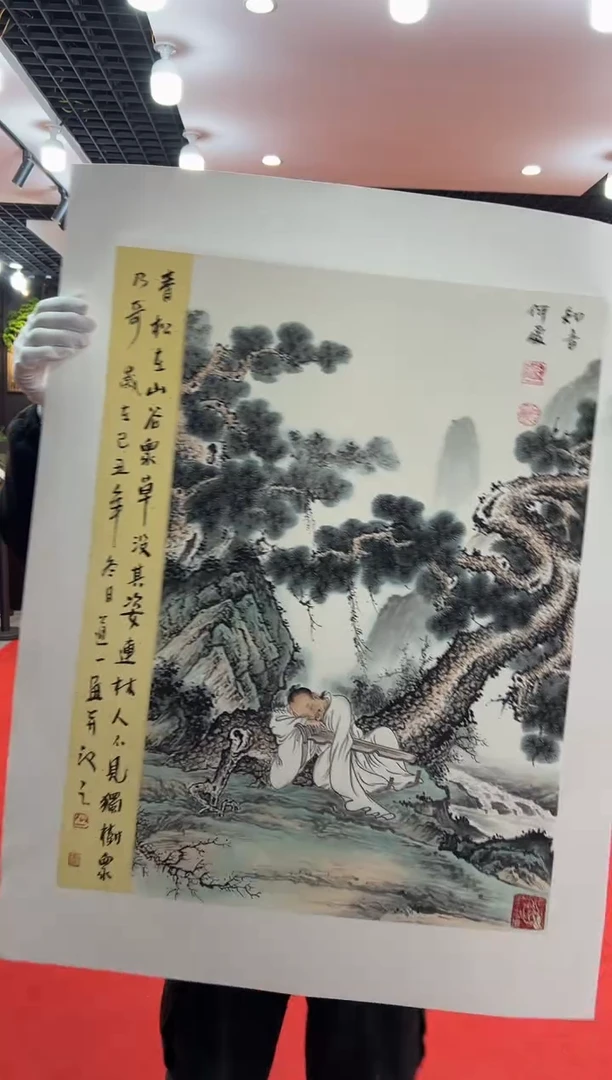 知音
何處
青松在山谷衆草没其姿連林人不見獨樹衆
乃奇 歲在己丑年冬日 一 并記之